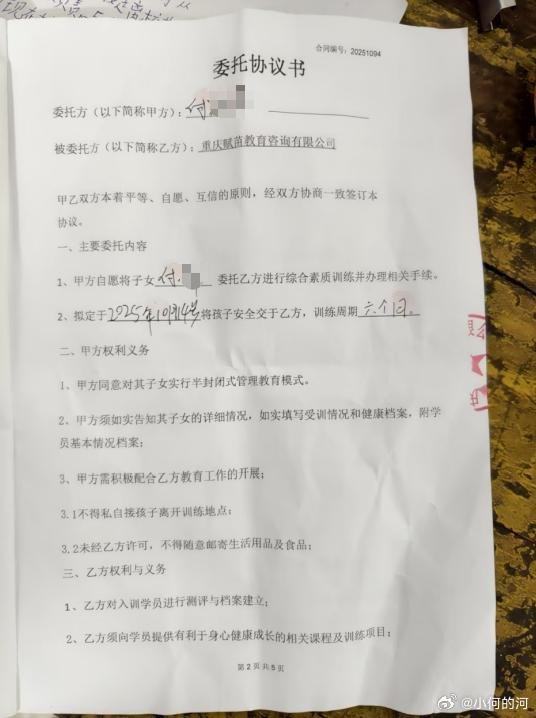 合同编号：20251094
委托协议书
委托方（以下简称甲方）：付
被委托方（以下简称乙方）：重庆赋苗教育咨询有限公司
甲乙双方本着平等、自愿、互信的原则，经双方协商一致签订本
协议。
一、主要委托内容
1、甲方自愿将子女付 委托乙方进行综合素质训练并办理相关手续。
2、拟定于2025年10月14号将孩子安全交于乙方，训练周期六个月。
二、甲方权利义务
1、甲方同意对其子女实行半封闭式管理教育模式。
2、甲方须如实告知其子女的详细情况，如实填写受训情况和健康档案，附学
员基本情况档案；
3、甲方需积极配合乙方教育工作的开展；
3.1不得私自接孩子离开训练地点；
3.2未经乙方许可，不得随意邮寄生活用品及食品；
三、乙方权利与义务
1、乙方对入训学员进行测评与档案建立；
2、乙方须向学员提供有利于身心健康成长的相关课程及训练项目；
第2页共5页
@小何的河